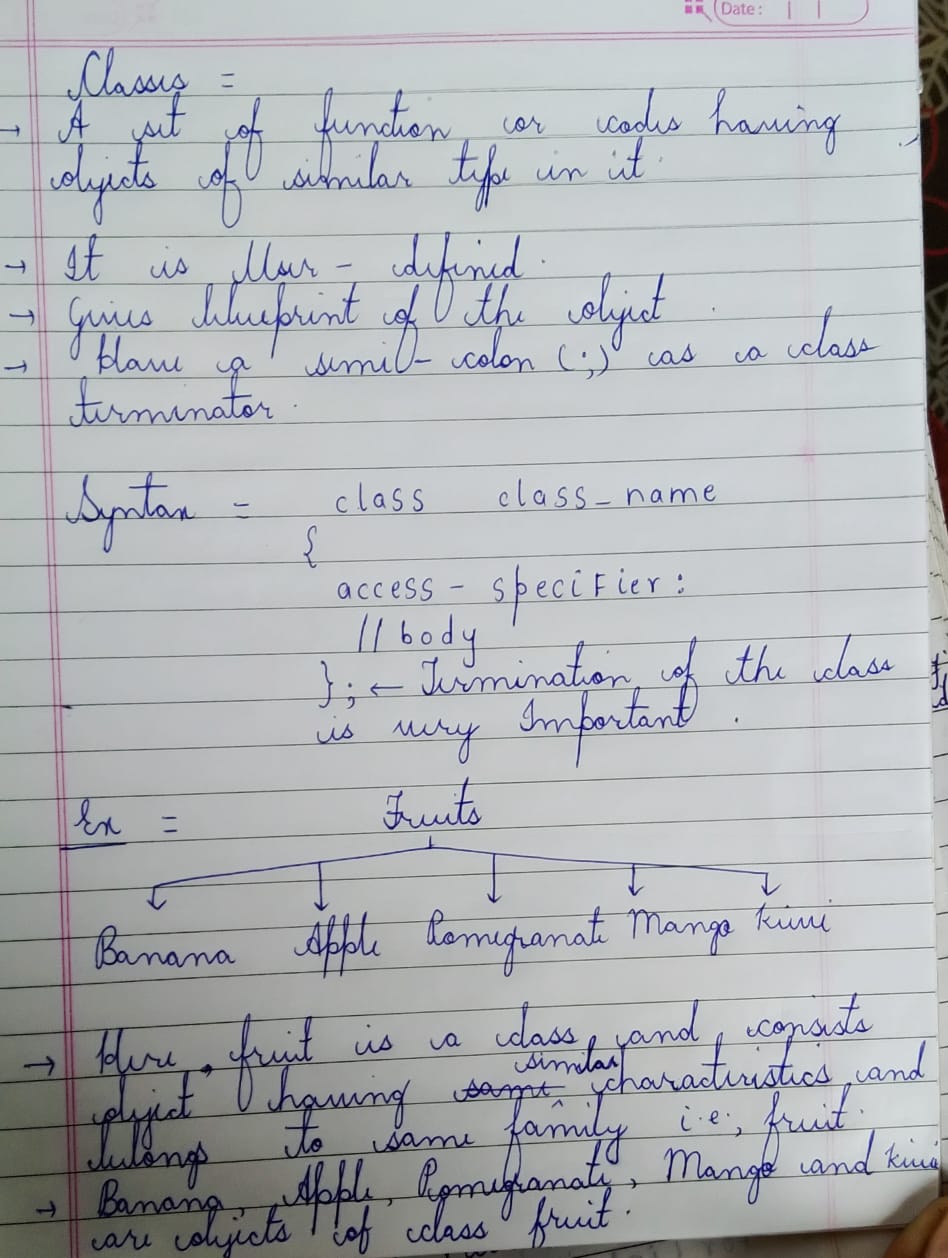 Date:
Classes =
→ A set of function or codes having
objects of similar type in it.
→ It is User-defined.
→ Gives blueprint of the object.
→ Have a semi-colon (;) as a class
terminator.
Syntax = class class_name
{
access-specifier:
// body
}; ← Termination of the class
is very Important.
Ex = Fruits
Banana Apple Pomegranate Mango kiwi
→ Here, fruit is a class, and, consists
similar
object having same characteristics and
belongs to same family i.e; fruit.
→ Banana, Apple, Pomegranate, Mango and kiwi
are objects of class fruit.